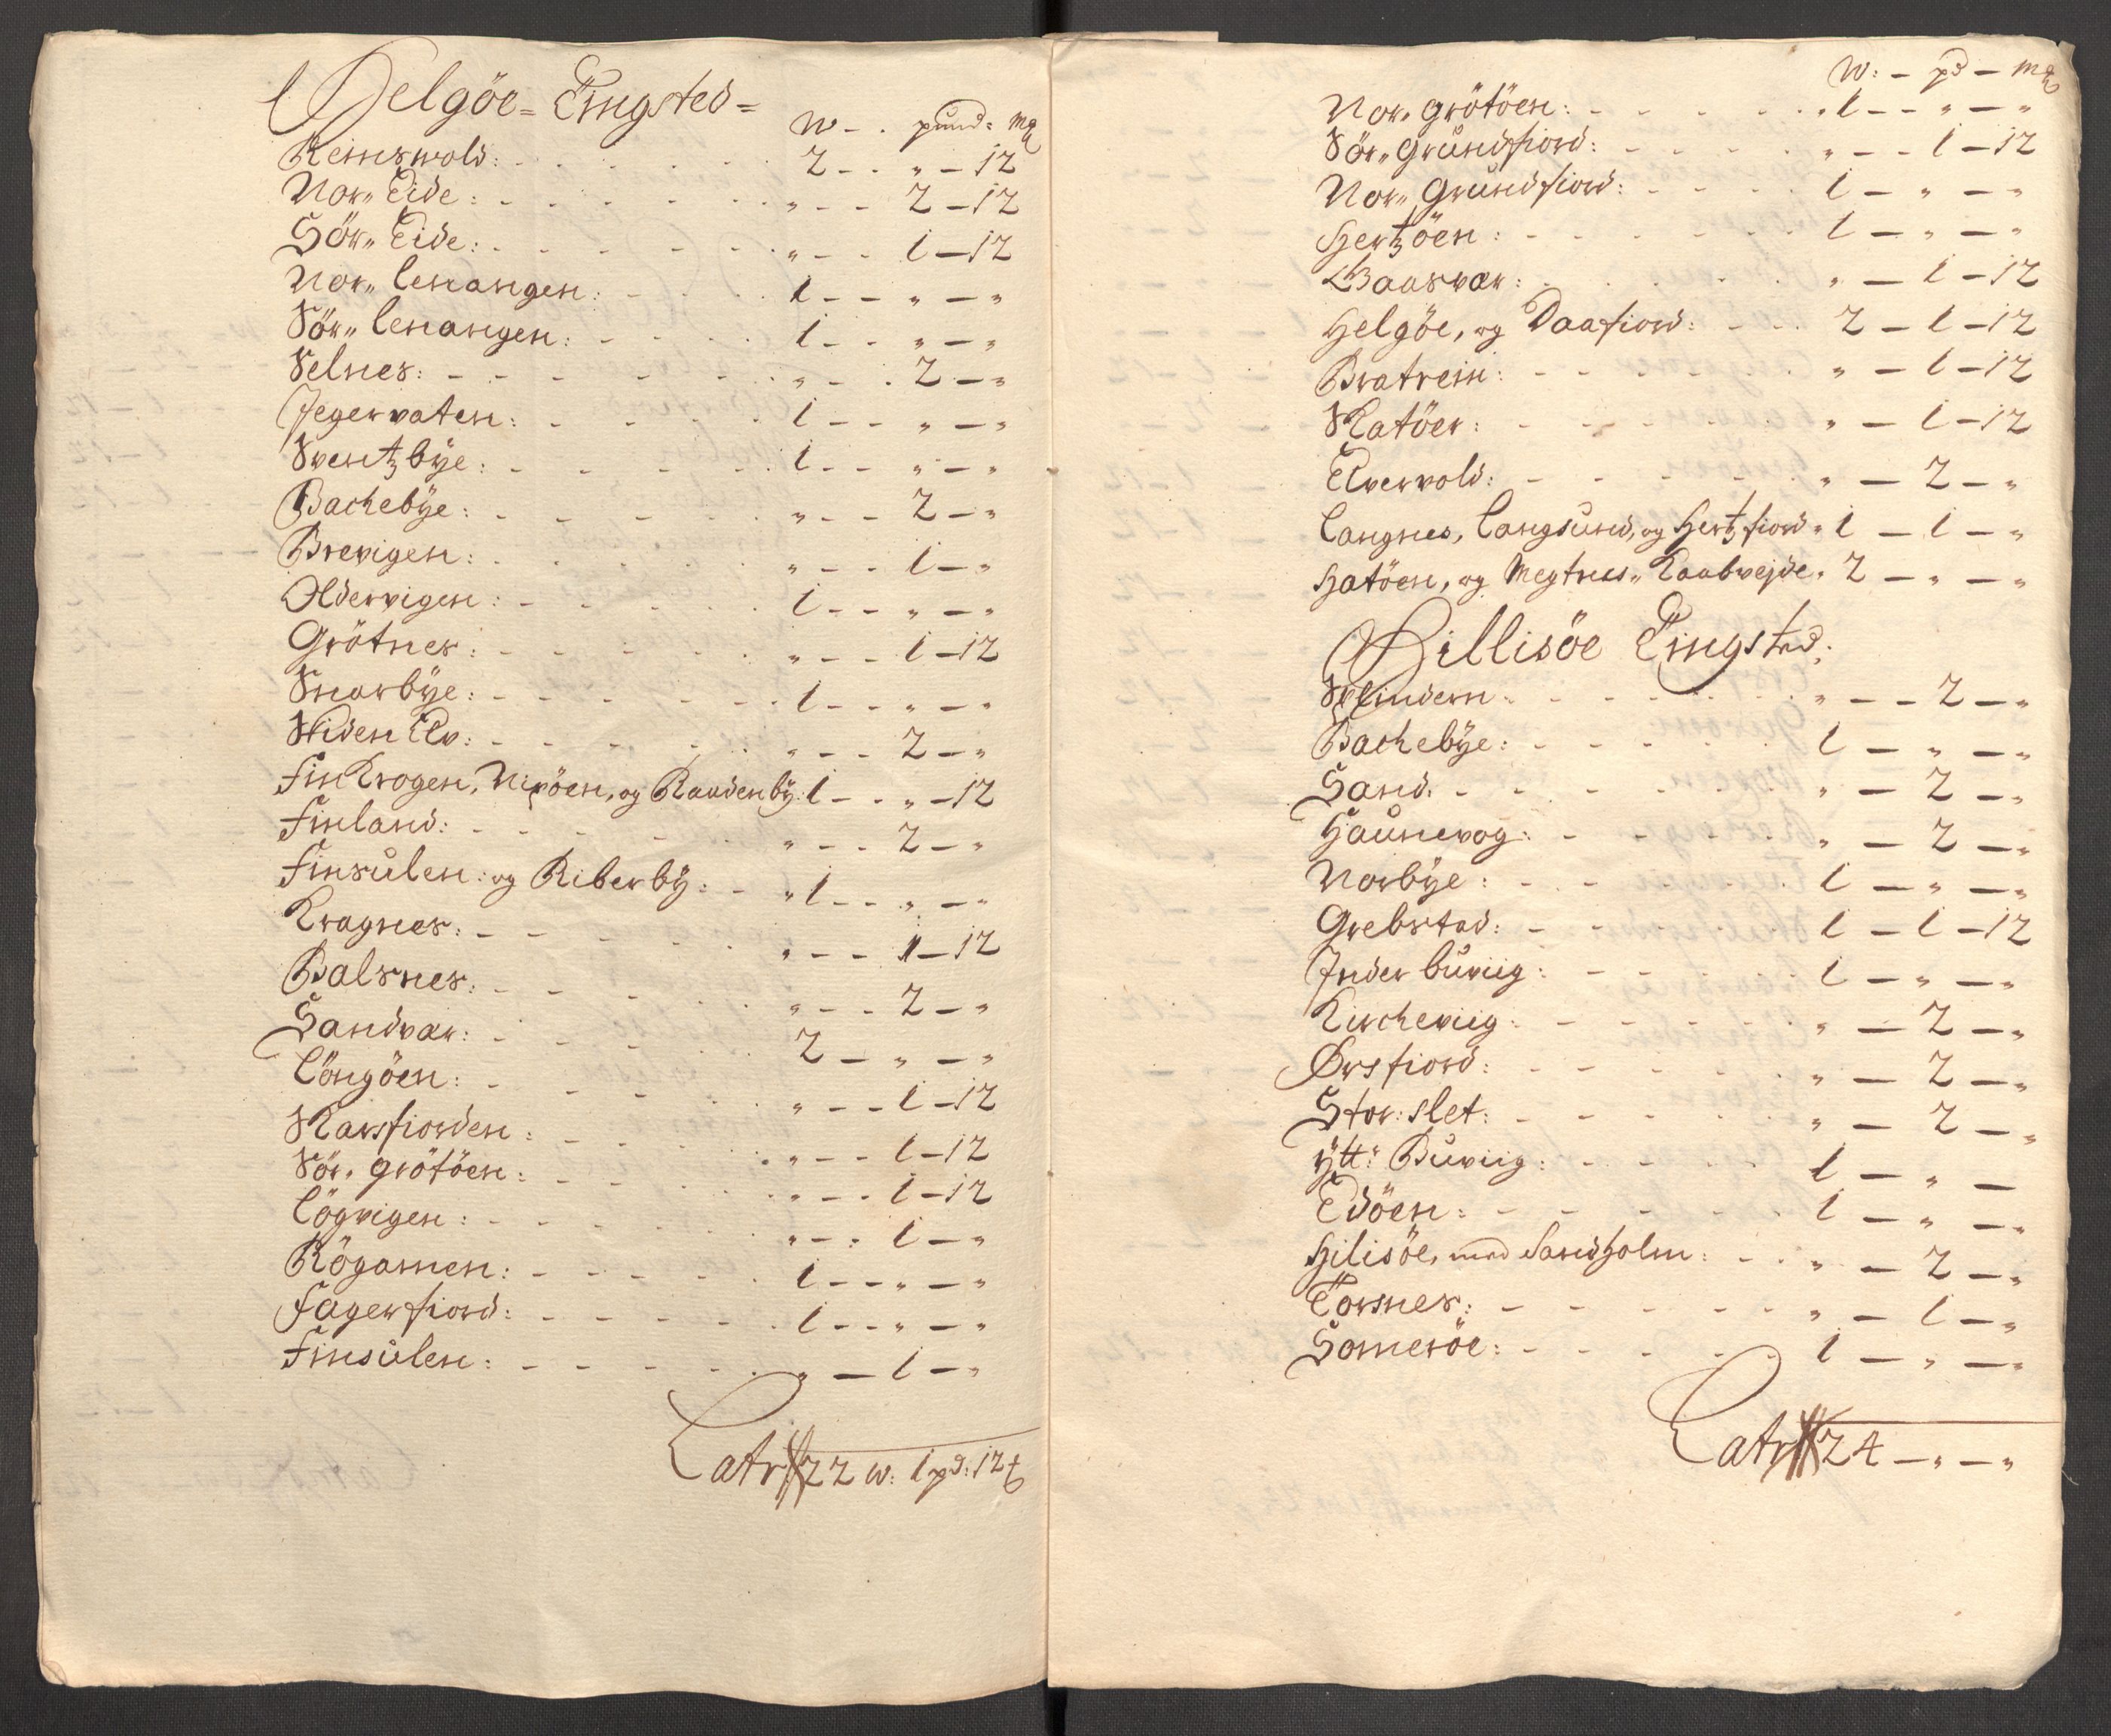 Helgöe- Tingsted-
W - . pund: mg
Reinswold: 2 - - „ - 12
Nor„ Eide: „ - - 2 - 12
Sör„ Eide: „ - - 1 - 12
Nor„ Lenangen: 1 - - „ - „
Sör„ Lenangen: 1 - - „ - „
Selnes: „ - - 2 - „
Jegervaten: 1 - - „ - „
Sventzbÿe: 1 - - „ - „
Bachebÿe: „ - - 2 - „
Brevigen: „ - - 1 - „
Oldervigen: 1 - - „ - „
Grötnes: „ - - 1 - 12
Snarbÿe: 1 - - „ - „
Skiden Elv: „ - - 2 - „
Finkrogen, Nipöen, og Raudenbÿ: 1 - - „ - 12
Finland: „ - - 2 - „
Finsulen: og Riberbÿ: „ 1 - - „ - „
Kragnes: „ - - 1 - 12
Balsnes: „ - - 2 - „
Sandvær: 2 - „ - „
Löngöen: „ - - 1 - 12
Skarsfiorden: „ - - 1 - 12
Sör„ grötöen: „ - - 1 - 12
Lögvigen: „ - - 1 - „
Rögamen: 1 - - „ - „
Fagerfiord: 1 - - „ - „
Finsulen: „ - 1 - „
Latr 22 W: 1 pd: 12
W: - pd - mg
Nor„ grötöen: 1 - - „ - „
Sör„ Grundfiord: „ - - 1 - 12
Nor„ Grundfiord: 1 - „ - „
Hertzöen: 1 - „ - „
Gaasvær: „ - 1 - 12
Helgöe, og Daafiord: 2 - 1 - 12
Bratrein: „ - 1 - 12
Skatöer: „ - 1 - 12
Elvervold: „ - 2 - „
Langnes, Langsund, og Hertzfiord„ 1 - 1 - „
Hatöen, og Megtnes„ Kaabvejde„ 2 - „ - „
Hillisöe Tingsted:
Splindern „ - - 2 - „
Bachebÿe: 1 - „ - „
Sand. „ - 2 - „
Haunevog: „ - 2 - „
Norbÿe: 1 - „ - „
Grebstad: 1 - 1 - 12
Inder buviig: 1 - „ - „
Kircheviig: „ - 2 - „
Ørsfiord: „ - 2 - „
Stor: slet: „ - 2 - „
ÿtt: Buviig: 1 - „ -
Edöen: 1 - „ - „
Hilisöe, med Sandholm: „ - 2 - „
Torsnes: „ - 1 - „
Someröe: 1 - „ - „
Latr 24 - „ - „